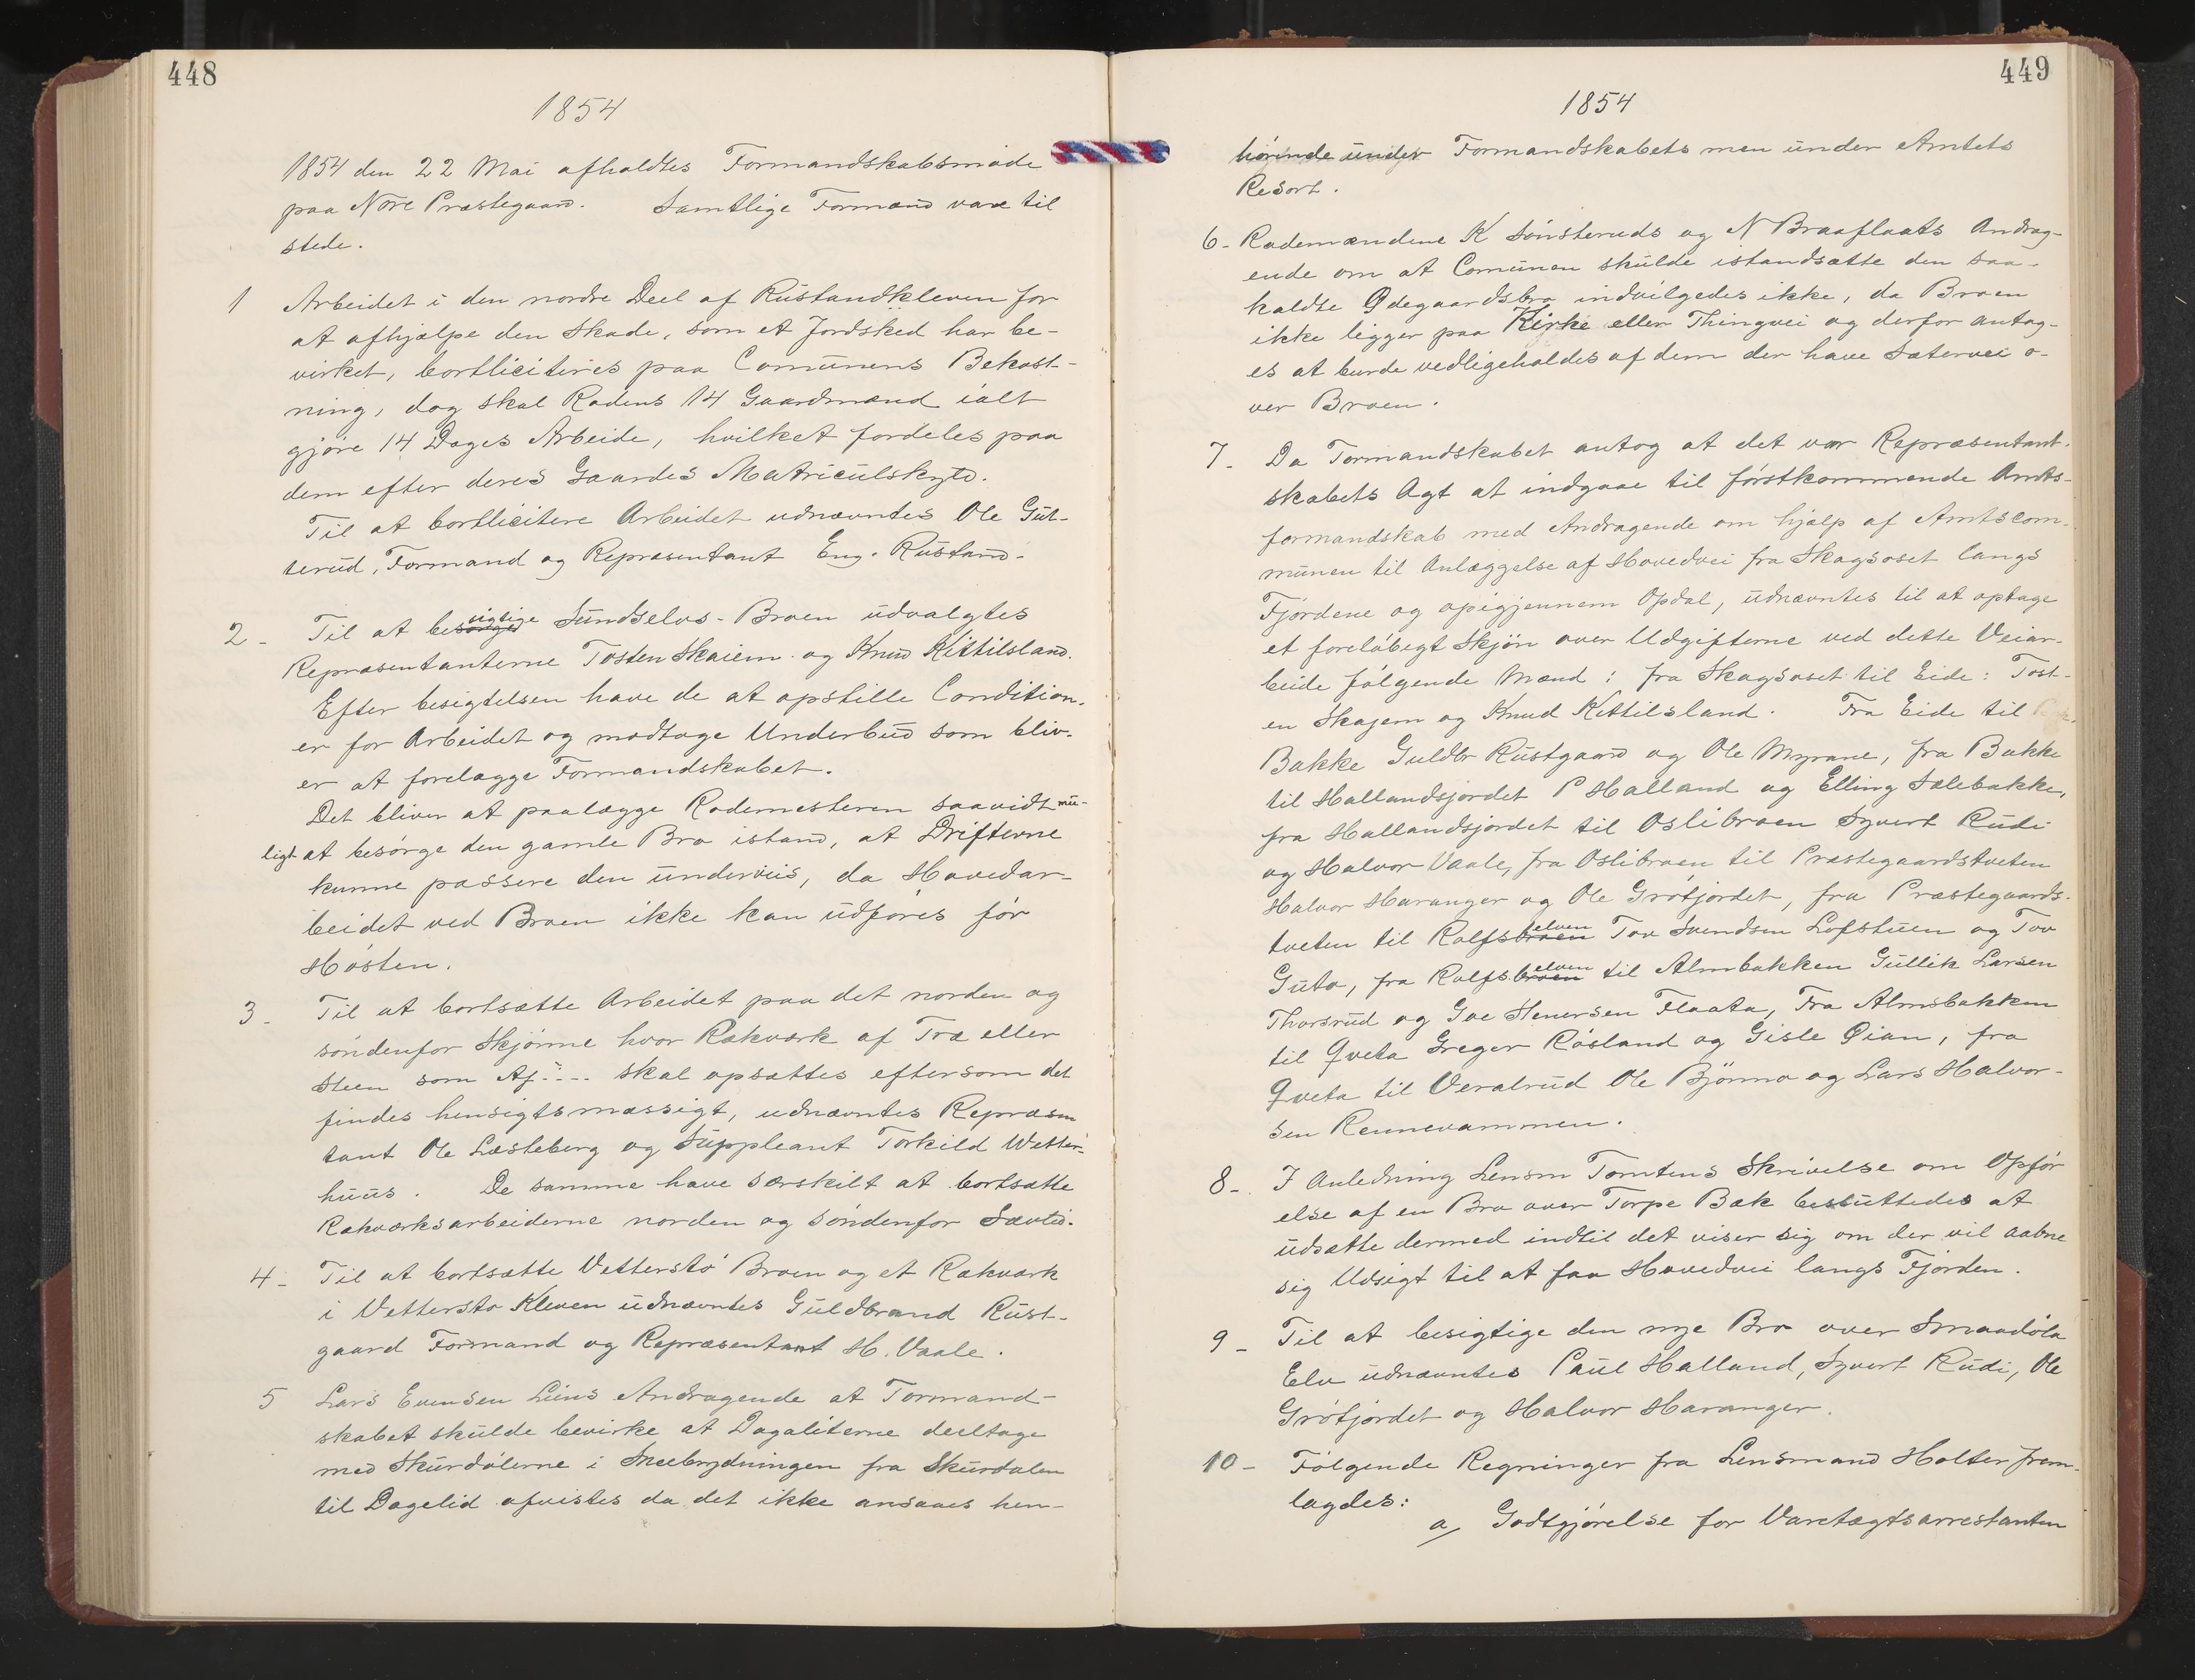 448
1854
1854 den 22 Mai afholdtes Formandskabsmøde
paa Nore Præstegaard. Samtlige Formænd vare til
stede.
1 Arbeidet i den nordre Deel af Rustandkleven for
at afhjælpe den Skade, som et Jordsked har be-
virket, bortliciteres paa Comunens Bekost-
ning, dog skal Rodens 14 Gaardmænd ialt
gjøre 14 Dages Arbeide, hvilket fordeles paa
dem efter deres Gaardes Matriculskyld.
Til at bortlicitere Arbeidet udnævntes Ole Gut-
terud, Formand og Repræsentant Eng. Rustand.
2 - Til at besigtige Sundselvs-Broen udvalgtes
Repræsentanterne Tosten Skaiem og Knud Kittilsland.
Efter besigtelsen have de at opstille Condition-
er for Arbeidet og modtage Underbud som bliv-
er at forelægge Formandskabet.
Det bliver at paalægge Rodemesteren saavidt mu-
ligt at besørge den gamle Bro istand, at Drifterne
kunne passere den underveis, da Hovedar-
beidet ved Broen ikke kan udføres før
Høsten.
3 - Til at bortsætte Arbeidet paa det norden og
søndenfor Skjønne hvor Rækværk af Træ eller
Steen som Af.... skal opsættes eftersom det
findes hensigtsmæssigt, udnævntes Repræsen
tant Ole Læsteberg og Suppleant Torkild Wetter-
huus. De samme have særskilt at bortsætte
Rækværksarbeiderne norden og søndenfor Sævtid.
4 - Til at bortsætte Vetterstø Broen og et Rækværk
i Vettersto Kleven udnævntes Guldbrand Rust-
gaard Formand og Repræsentant H. Vaale.
5 Lars Evensen Leins Andragende at Formand-
skabet skulde bevirke at Dagaliterne deeltage
med Skurdølerne i Sneebrydningen fra Skurdalen
til Dagelid afvistes da det ikke ansaaes hen-
449
1854
hørende under Formandskabets men under Amtets
Resort.
6 - Rodemændene K Sønsteruds og N Braaflaats Andrag-
ende om at Comunen skulde istandsætte den saa-
kaldte Ødegaardsbro indvilgedes ikke, da Broen
ikke ligger paa Kirke eller Thingvei og derfor antag-
es at burde vedligeholdes af dem der have Sætervei o-
ver Broen.
7 - Da Formandskabet antog at det var Repræsentant-
skabets Agt at indgaae til førstkommende Amts-
formandskab med Andragende om hjælp af Amtscom-
munen til Anlæggelse af Hovedvei fra Skagsoset langs
Fjordene og opigjennem Opdal, udnævntes til at optage
et foreløbigt Skjøn over Udgifterne ved dette Veiar-
beide følgende Mænd: fra Skagsoset til Eide: Tost-
en Skajem og Knud Kittilsland. Fra Eide til
Bakke Guldbr Rustgaard og Ole Myrane, fra Bakke
til Hallandsjordet P Halland og Elling Sælebakke,
fra Hallandsjordet til Oslibroen Syvert Rudi
og Halvor Vaale, fra Oslibroen til Præstegaardstveten
Halvor Haranger og Ole Grøtjordet, fra Præstegaards-
tveten til Rolfsbroen elven Tov Svendsen Lofstuen og Tov
Guto, fra Rolfsbroen elven til Almbakken Gullik Larsen
Thorsrud og Goe Henersen Flaata, Fra Almsbakken
til Qveta Greger Røsland og Gisle Øian, fra
Qveta til Veralrud Ole Bjønno og Lars Halvor-
sen Rennevammen.
8 - I Anledning Lensm Tomtens Skrivelse om Opfør
else af en Bro over Torpe Bæk besluttedes at
udsætte dermed indtil det viser sig om der vil aabne
sig Udsigt til at faa Hovedvei langs Fjorden.
9 - Til at besigtige den nye Bro over Smaadøla
Elv udnævntes Paul Halland, Syvert Rudi, Ole
Grøtjordet og Halvor Haranger.
10 - Følgende Regninger fra Lensmand Holter frem-
lagdes:
a, Godtgjørelse for Varetægtsarrestanten